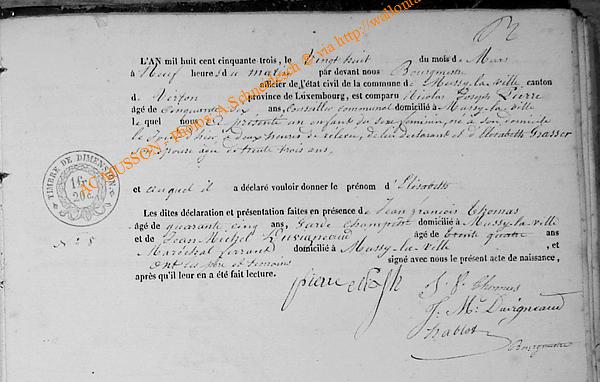 L'AN mil huit cent cinquante trois, le Vingt huit du mois de Mars
à Neuf heures du matin par devant nous Bourgmestre
officier de l'état civil de la commune de Mussy-la-ville canton
de Virton province de Luxembourg, est comparu Nicolas Joseph Pierre
âgé de Cinquante ans, Conseiller communal domicilié à Mussy-la-ville
lequel nous a présenté un enfant du sexe féminin, né à son domicile
le jour deux heures de relevée, de lui déclarant et d'Elisabeth
son épouse âgée de trente trois ans,
et auquel il a déclaré vouloir donner le prénom d'Elisabeth
Les dites déclaration et présentation faites en présence de Jean françois Thomas
âgé de quarante cinq ans, Garde Champêtre domicilié à Mussy-la-ville
et de Jean Michel Duvigneaud âgé de trente quatre ans
Maréchal ferrant domicilié à Mussy-la-ville, et
ont les père et témoins signé avec nous le présent acte de naissance,
après qu'il leur en a été fait lecture.
J. F. Thomas
J. M. Duvigneaud
Bourgmestre
N° 8
TIMBRE DE DIMENSION
AC MUSSON - Photos A.Schmaelsch © via http://www.wallonia